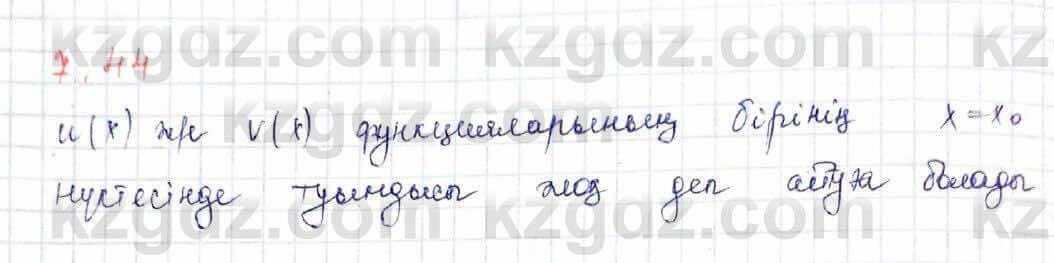 kzgdz.com kzgdz.com kz
7.44
u(x) жне v(x) функцияларының бірінің x=x₀
kzgdz.com kzgdz.com kz
нүктесінде туындысы жоқ деп айтуға болады
kzgdz.com kzgdz.com kz